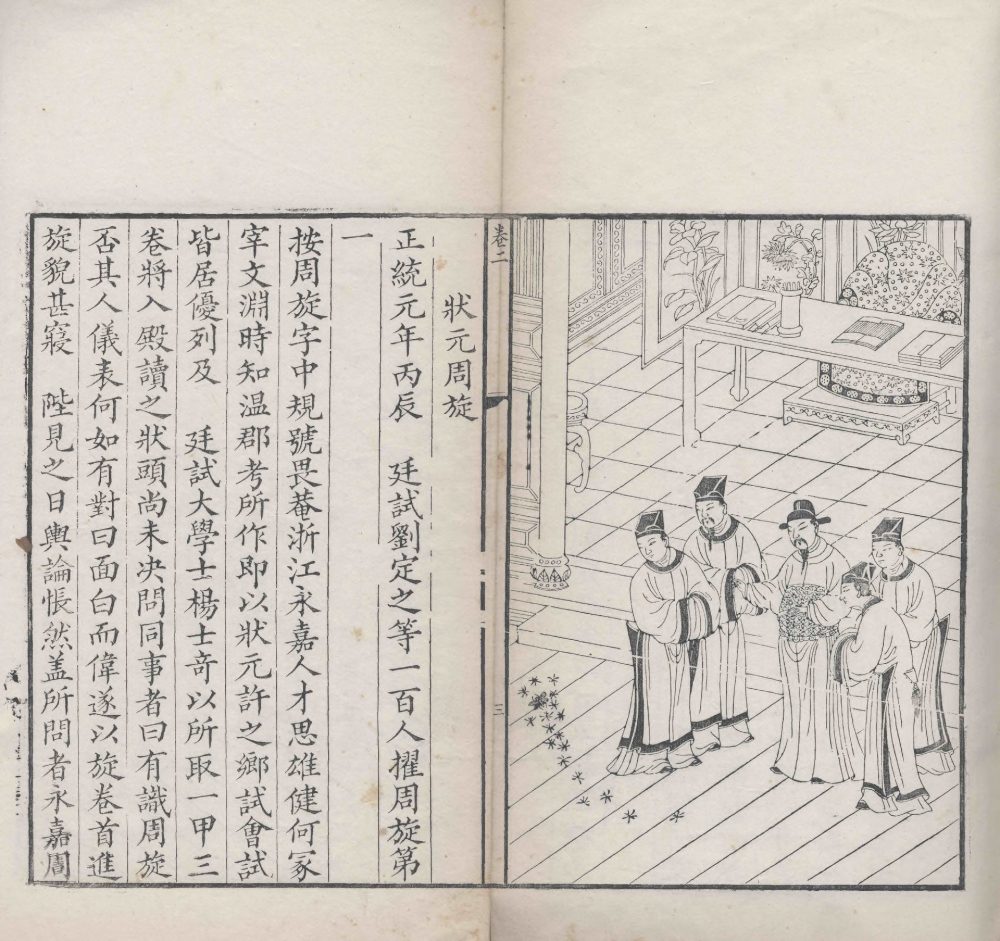 卷二
三
狀元周旋
正統元年丙辰　廷試劉定之等一百人擢周旋第
一
按周旋字中規號畏菴浙江永嘉人才思雄健何冢
宰文淵時知温郡考所作即以狀元許之鄉試會試
皆居優列及　廷試大學士楊士竒以所取一甲三
卷將入殿讀之狀頭尚未决問同事者曰有識周旋
否其人儀表何如有對曰面白而偉遂以旋卷首進
旋貌甚寢　陛見之日輿論悵然盖所問者永嘉周